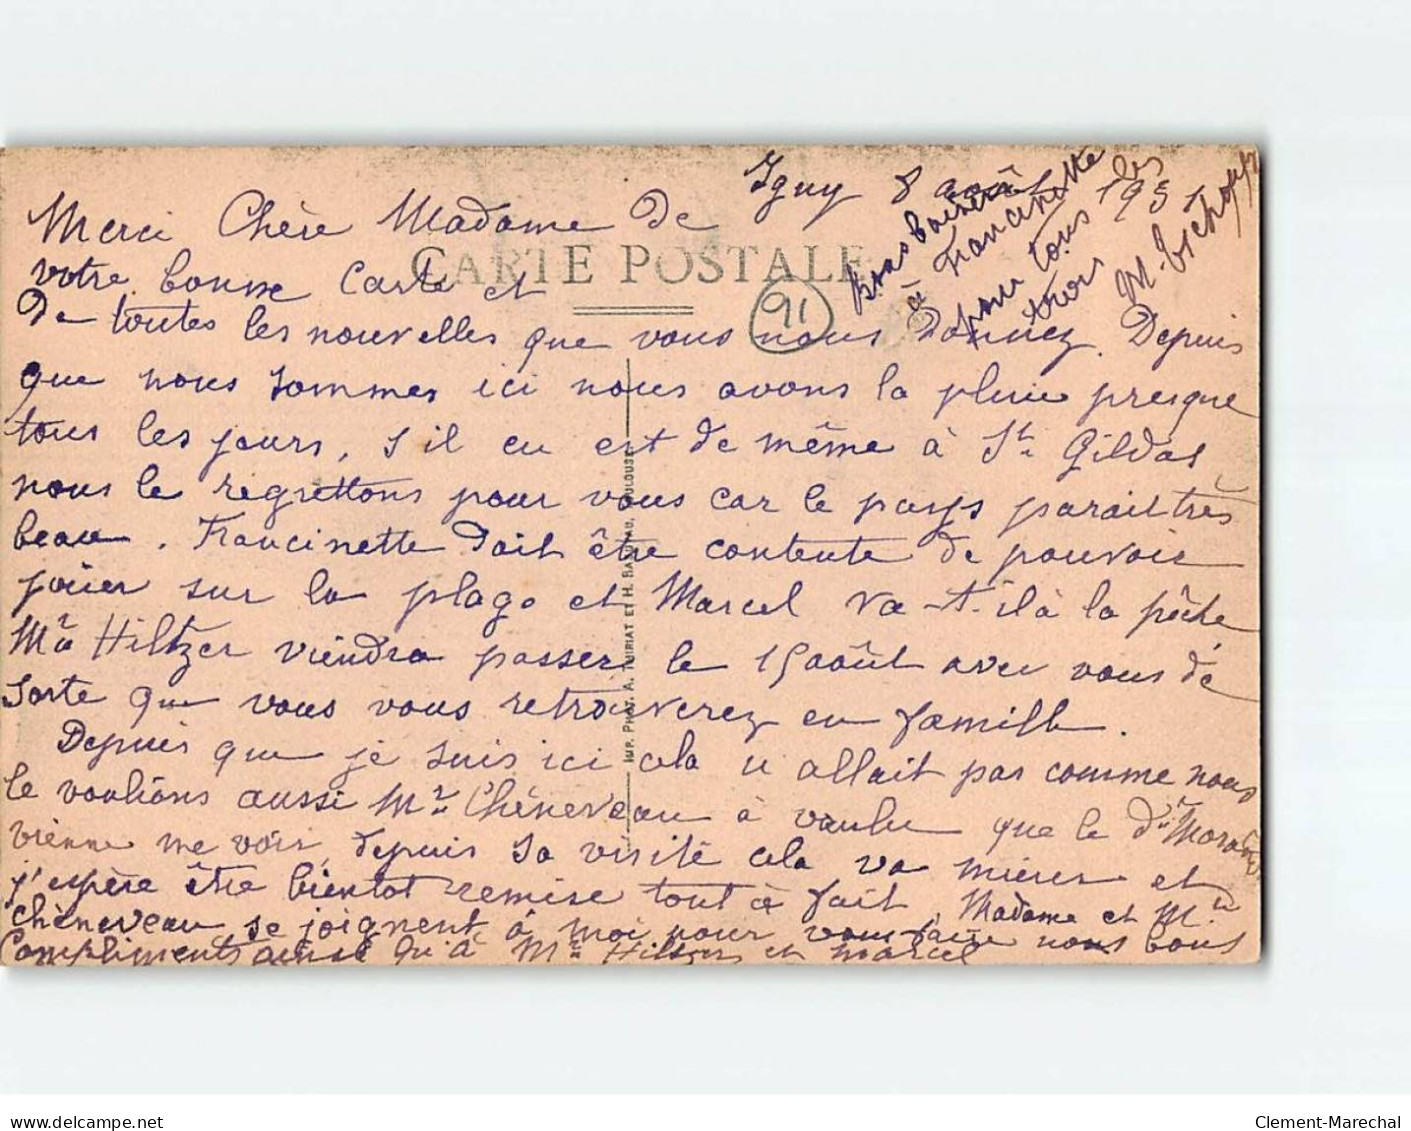 Igny 8 août 1931
Merci Chère Madame de
votre bonne Carte et
CARTE POSTALE
91
De toutes les nouvelles que vous nous Donnez. Depuis
que nous sommes ici nous avons la pluie presque
tous les jours, s'il en est de même à St Gildas
nous le regrettons pour vous car le pays parait très
beau. Francinette doit être contente de pouvoir
jouer sur la plage et Marcel va-t-il à la pêche
Mr Hiltzer viendra passer le 15 août avec vous de
sorte que vous vous retrouverez en famille.
Depuis que je suis ici cela n allait pas comme nous
le voulions aussi Mr Chéneveau à voulu que le Dr
vienne me voir, depuis sa visite cela va mieux et
j'espère être bientot remise tout à fait, Madame et Mr
Chèneveau se joignent à moi pour vous faire nous bons
Compliments ainsi qu'à Mr Hiltzer et marcel
bons baisers
à Francinette
pour tous les
trois
IMP. PHOT. A. THIRIAT ET H. BASUYAU, TOULOUSE
www.delcampe.net
Clement-Marechal